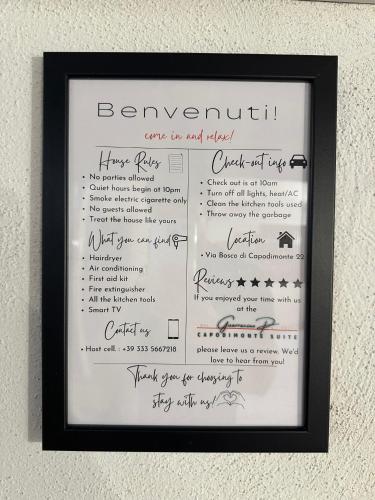 Benvenuti!
come in and relax!
House Rules
• No parties allowed
• Quiet hours begin at 10pm
• Smoke electric cigarette only
• No guests allowed
• Treat the house like yours
What you can find
• Hairdryer
• Air conditioning
• First aid kit
• Fire extinguisher
• All the kitchen tools
• Smart TV
Contact us
• Host cell. : +39 333 5667218
Check-out info
• Check out is at 10am
• Turn off all lights, heat/AC
• Clean the kitchen tools used
• Throw away the garbage
Location
• Via Bosco di Capodimonte 22
Reviews
If you enjoyed your time with us
at the
CAPODIMONTE SUITE
please leave us a review. We'd
love to hear from you!
Thank you for choosing to
stay with us!